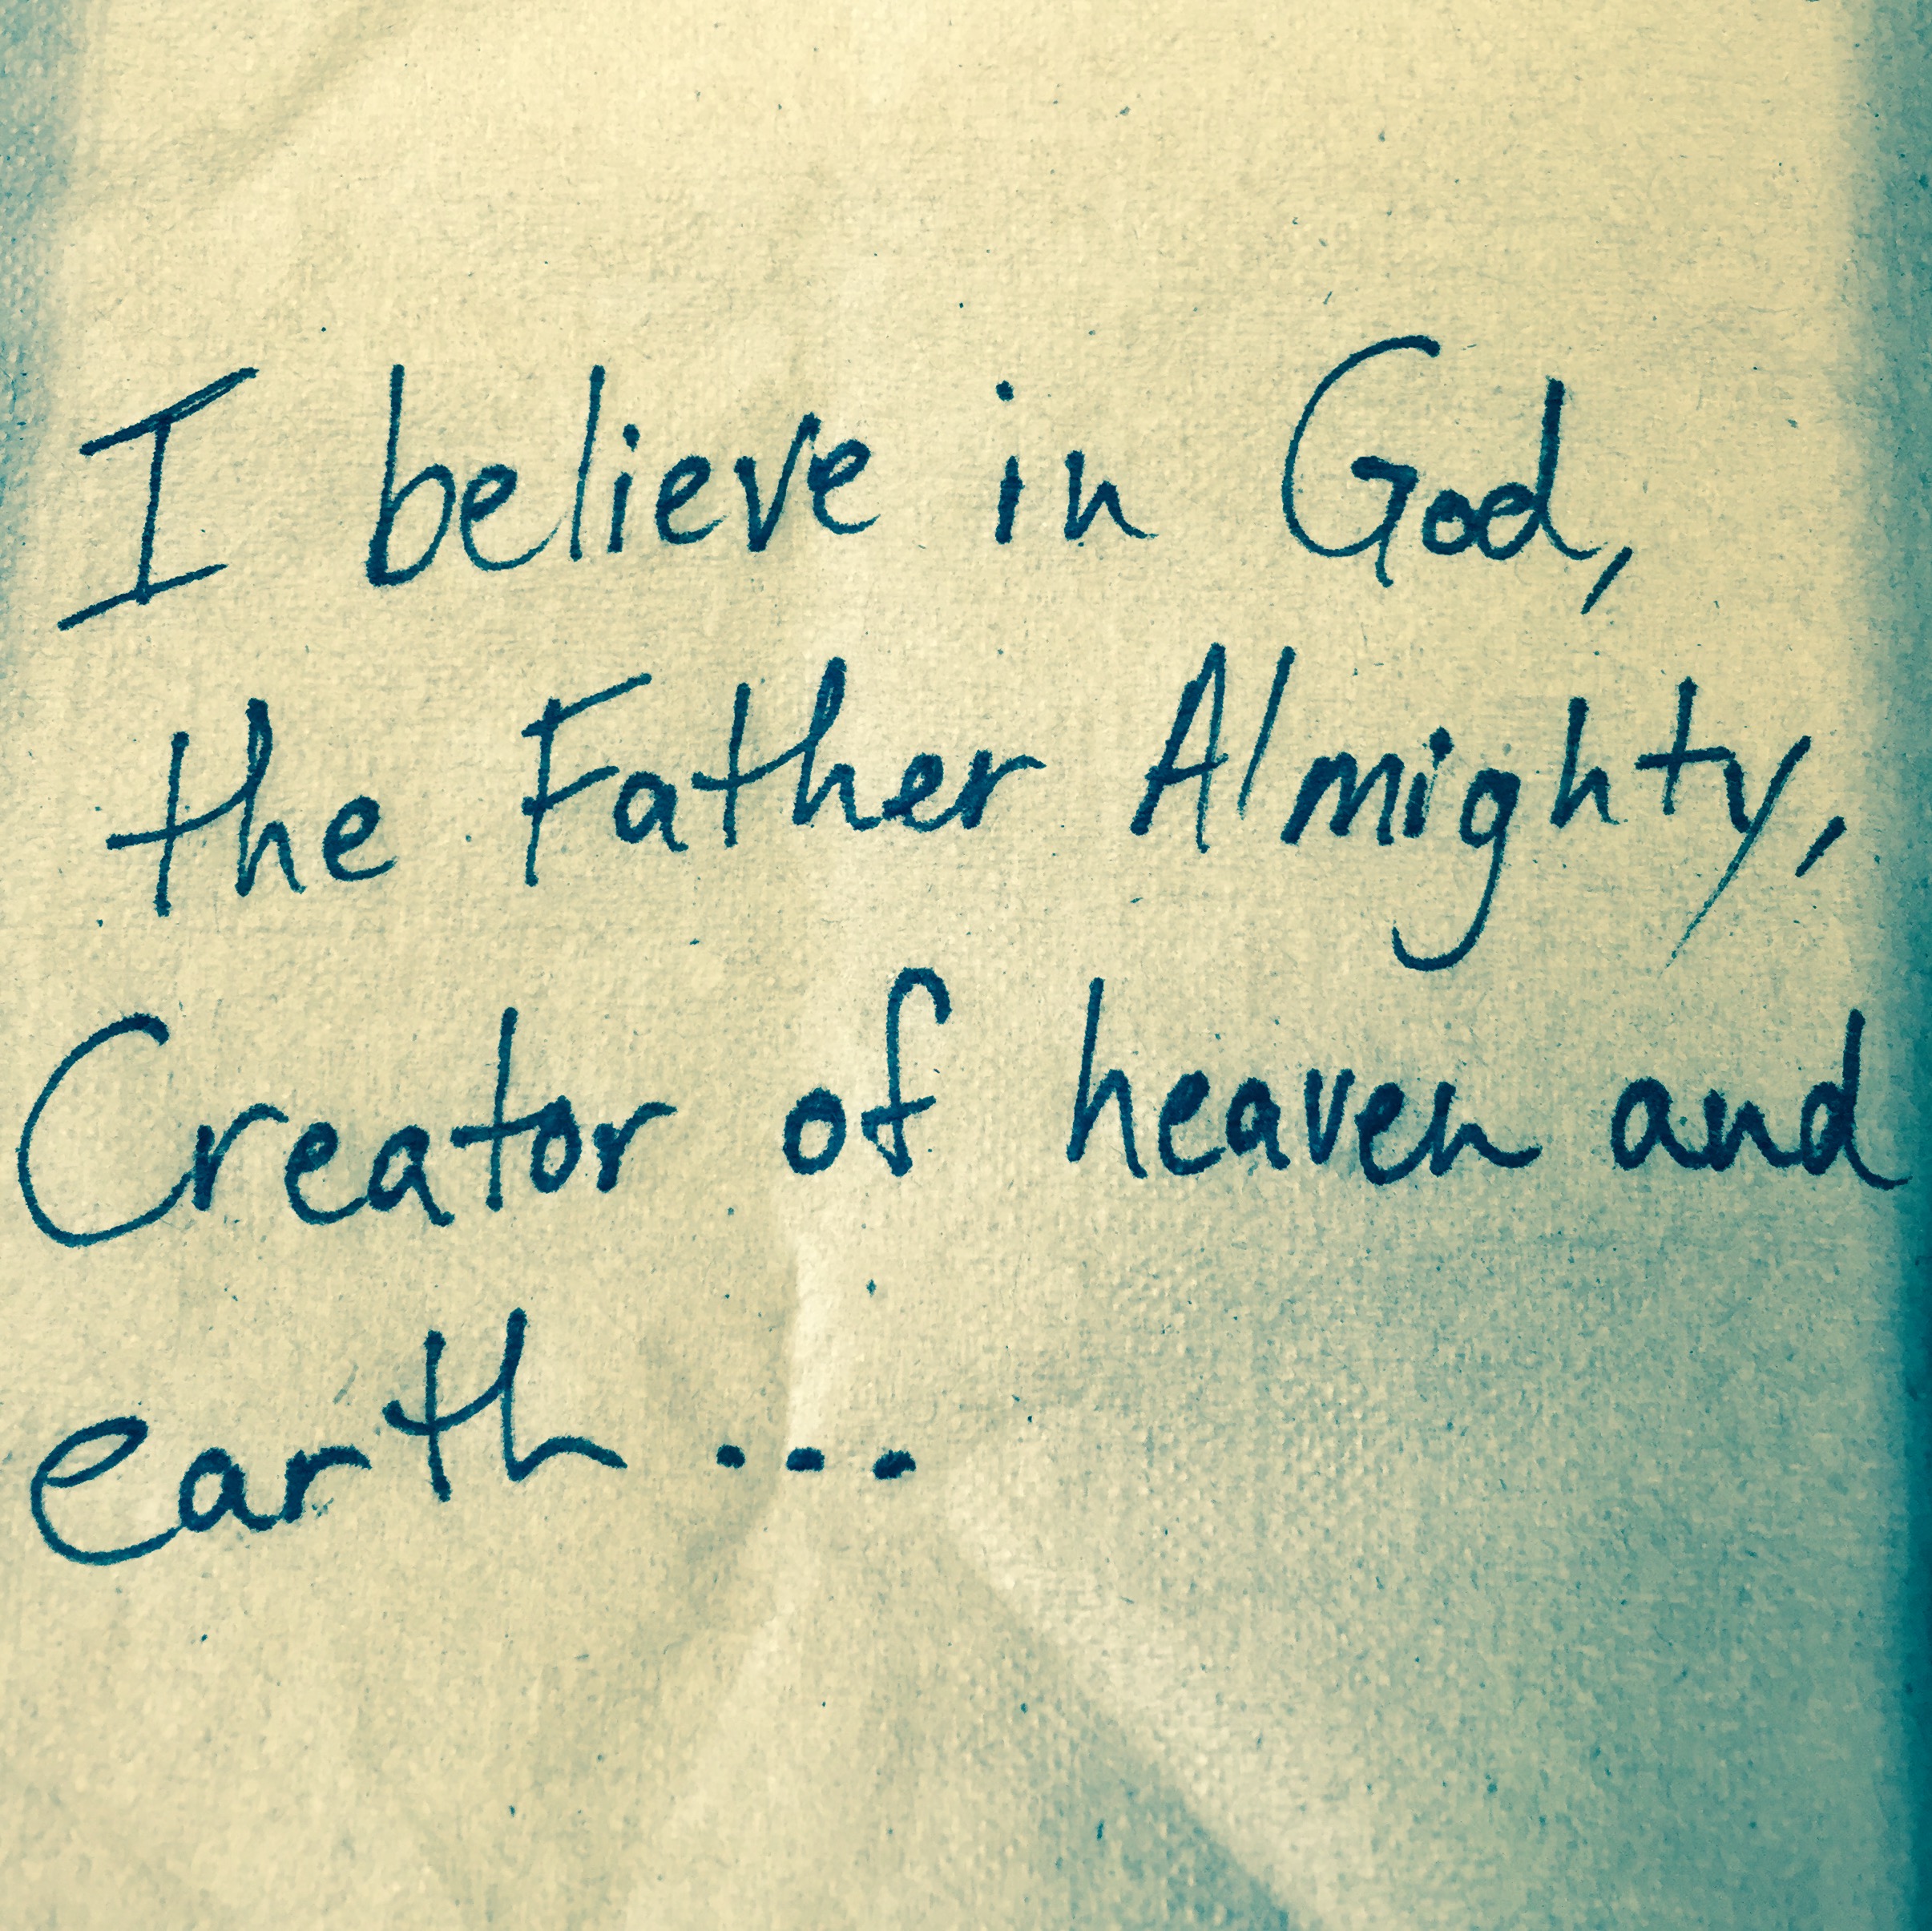 I believe in God,
the Father Almighty,
Creator of heaven and
earth...